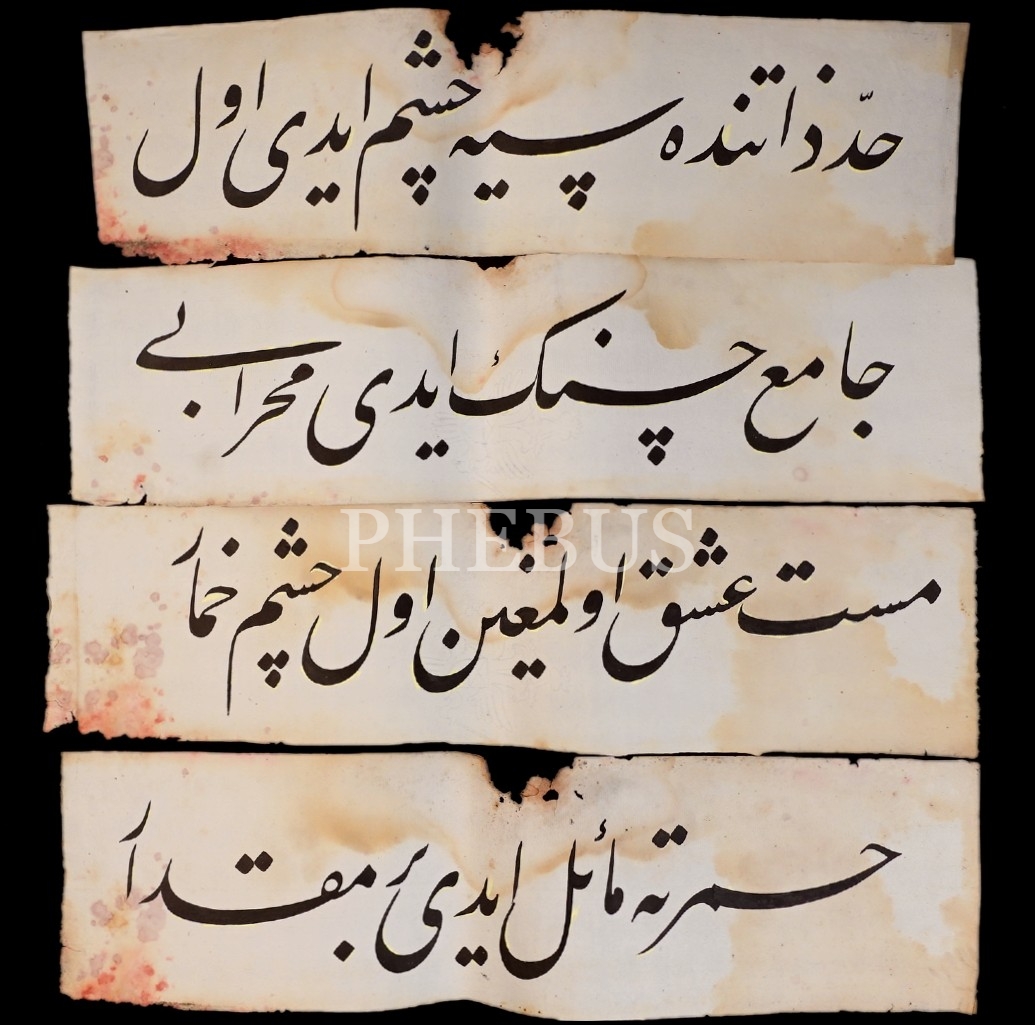 حدّ ذاتنده سیه چشم ایدی اول
جامع حسنك ایدی محرابی
PHEBUS
مست عشق اولمغین اول چشم خمار
حمرته مائل ایدی بر مقدار